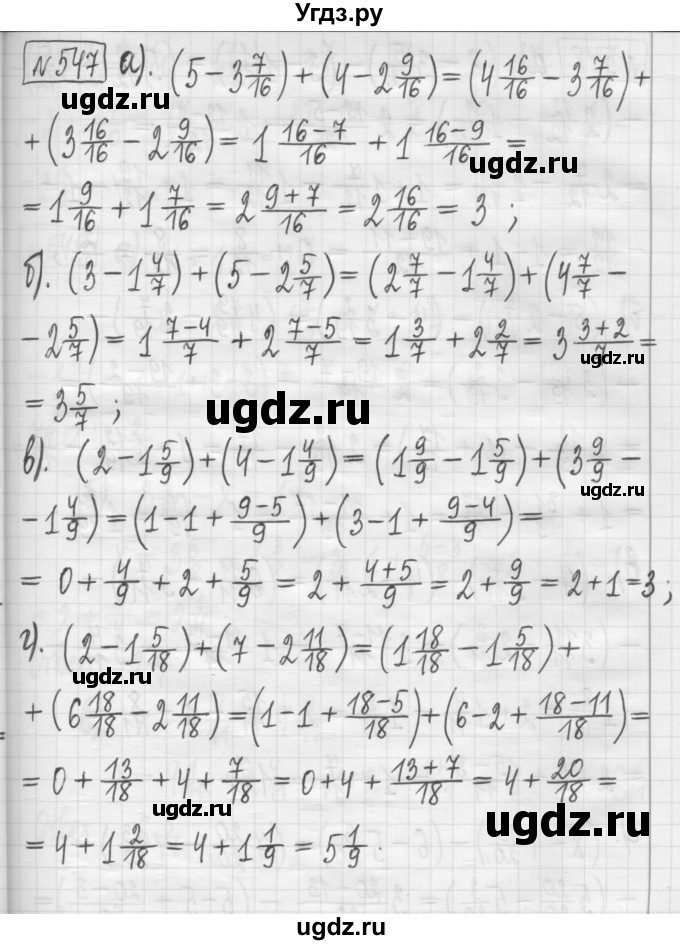 Угдз.ру
№547 а). (5 − 3 7/16) + (4 − 2 9/16) = (4 16/16 − 3 7/16) +
ugdz.ru
+ (3 16/16 − 2 9/16) = 1 (16−7)/16 + 1 (16−9)/16 =
ugdz.ru
= 1 9/16 + 1 7/16 = 2 (9+7)/16 = 2 16/16 = 3 ;
б). (3 − 1 4/7) + (5 − 2 5/7) = (2 7/7 − 1 4/7) + (4 7/7 −
− 2 5/7) = 1 (7−4)/7 + 2 (7−5)/7 = 1 3/7 + 2 2/7 = 3 (3+2)/7 =
ugdz.ru
= 3 5/7 ;
ugdz.ru
в). (2 − 1 5/9) + (4 − 1 4/9) = (1 9/9 − 1 5/9) + (3 9/9 −
ugdz.ru
− 1 4/9) = (1−1 + (9−5)/9) + (3−1 + (9−4)/9) =
= 0 + 4/9 + 2 + 5/9 = 2 + (4+5)/9 = 2 + 9/9 = 2 + 1 = 3 ;
ugdz.ru
г). (2 − 1 5/18) + (7 − 2 11/18) = (1 18/18 − 1 5/18) +
ugdz.ru
+ (6 18/18 − 2 11/18) = (1−1 + (18−5)/18) + (6−2 + (18−11)/18) =
= 0 + 13/18 + 4 + 7/18 = 0+4 + (13+7)/18 = 4 + 20/18 =
ugdz.ru
ugdz.ru
= 4 + 1 2/18 = 4 + 1 1/9 = 5 1/9 .
ugdz.ru